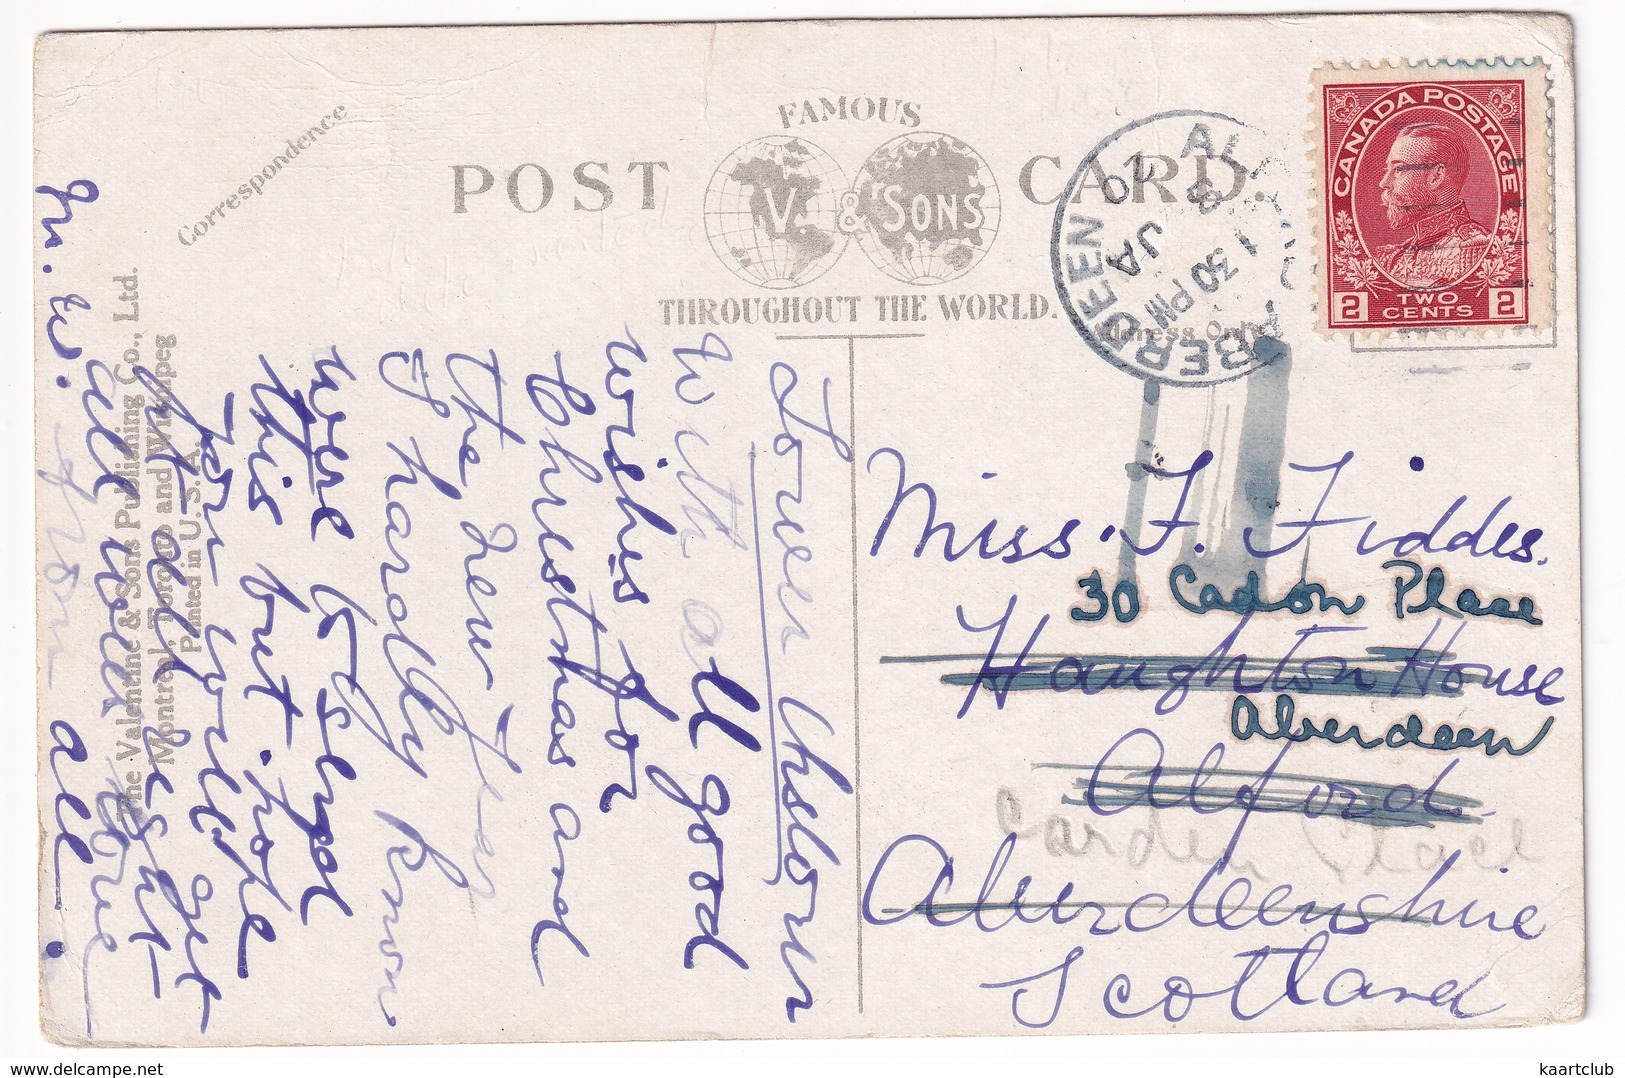 FAMOUS
POST CARD.
V. & SONS
THROUGHOUT THE WORLD.
Correspondence
The Valentine & Sons Publishing Co., Ltd.
Montreal, Toronto and Winnipeg
Printed in U. S. A.
CANADA POSTAGE
2 TWO CENTS 2
ABERDEEN
1 30 PM
JA
20
With all good
wishes for
Christmas and
the New Year
I hardly know
were to send
this but hope
you will get
it all right
all well here
from all.
Miss. F. Fiddes.
30 Cadon Place
Haughton House
Aberdeen
Alford.
Carden Place
Aberdeenshire
Scotland
kaartclub